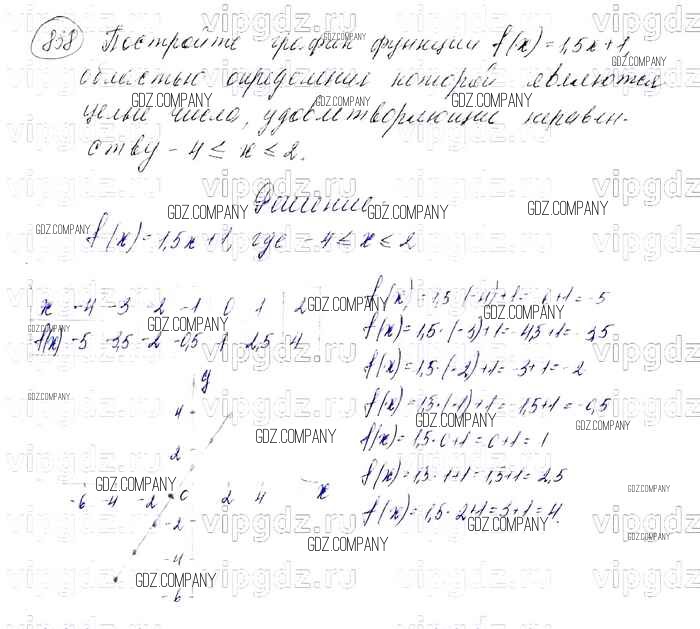 858 Постройте график функции f(x)=1,5x+1,
областью определения которой являются
целые числа, удовлетворяющие неравен-
ству -4 ≤ x ≤ 2.
Решение
f(x)=1,5x+1, где -4 ≤ x ≤ 2
x -4 -3 -2 -1 0 1 2
f(x) -5 -3,5 -2 -0,5 1 2,5 4
f(x)=1,5·(-4)+1=-6+1=-5
f(x)=1,5·(-3)+1=-4,5+1=-3,5
f(x)=1,5·(-2)+1=-3+1=-2
f(x)=1,5·(-1)+1=-1,5+1=-0,5
f(x)=1,5·0+1=0+1=1
f(x)=1,5·1+1=1,5+1=2,5
f(x)=1,5·2+1=3+1=4.
y
4
2
-6 -4 -2 0 2 4 x
-2
-4
-6
GDZ.COMPANY
vipgdz.ru